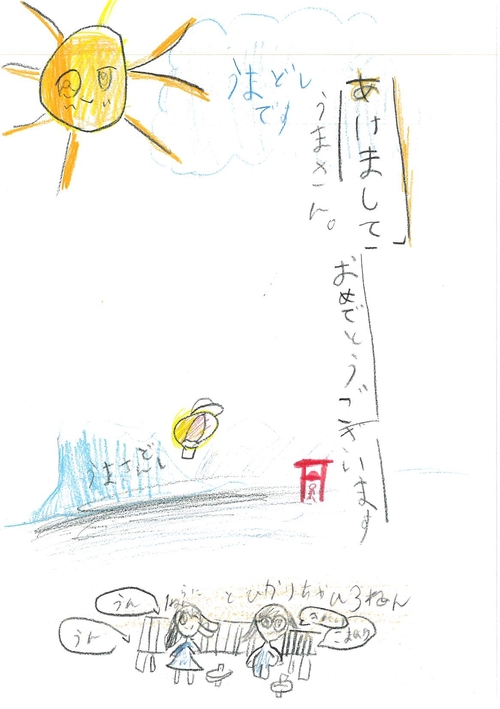 あけまして
おめでとうございます
うまどし
です
うまさん。
うまさん
どし
うん
うん
とひかりちゃん
3ねん